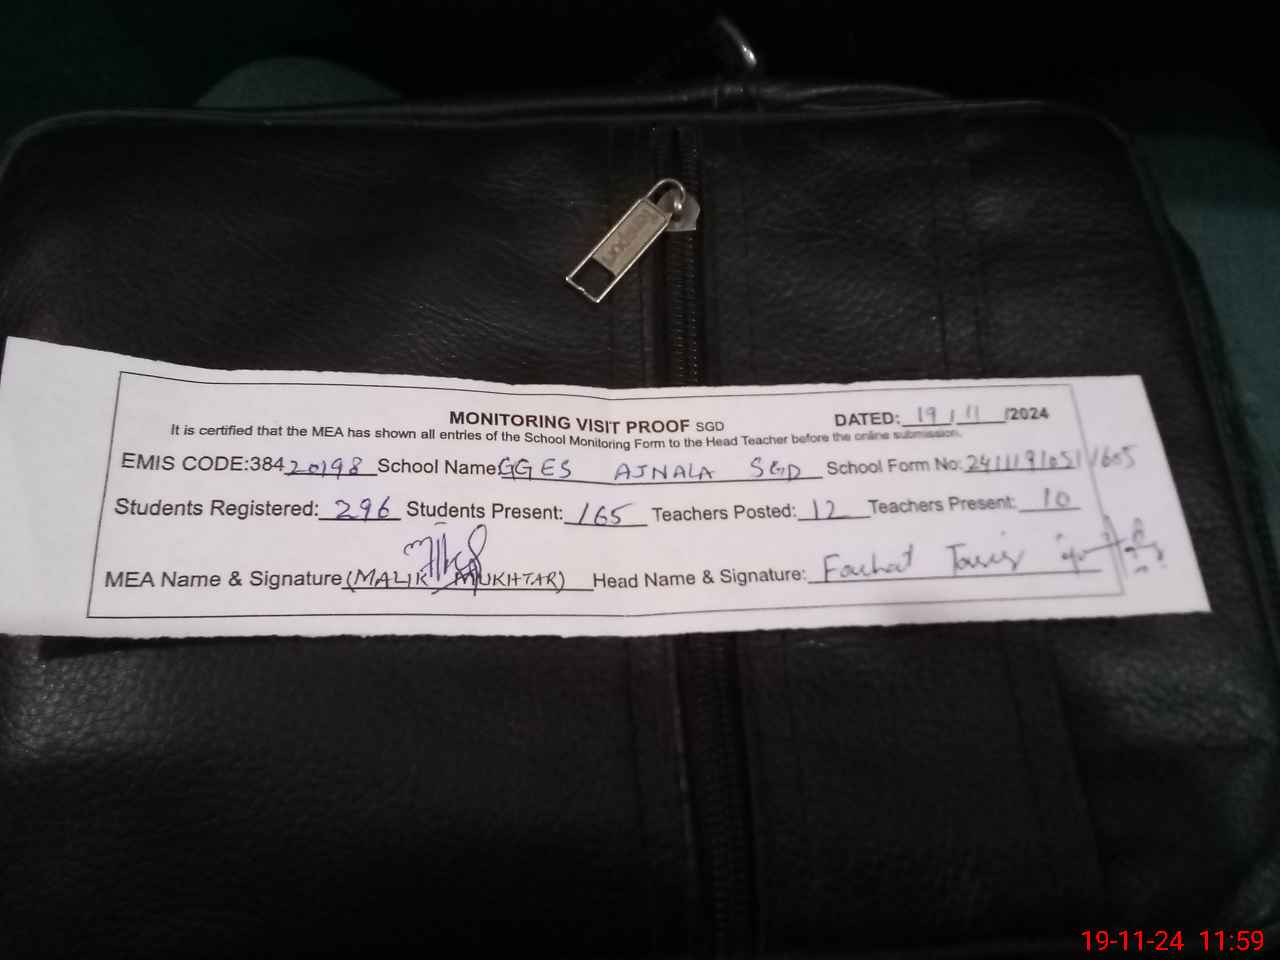 MONITORING VISIT PROOF SGD
DATED: 19/11/2024
It is certified that the MEA has shown all entries of the School Monitoring Form to the Head Teacher before the online submission.
EMIS CODE:38420198 School Name GGES AJNALA SGD School Form No: 241119/1051/1605
Students Registered: 296 Students Present: 165 Teachers Posted: 12 Teachers Present: 10
MEA Name & Signature (MALIK MUKHTAR) Head Name & Signature: Farhat
19-11-24 11:59